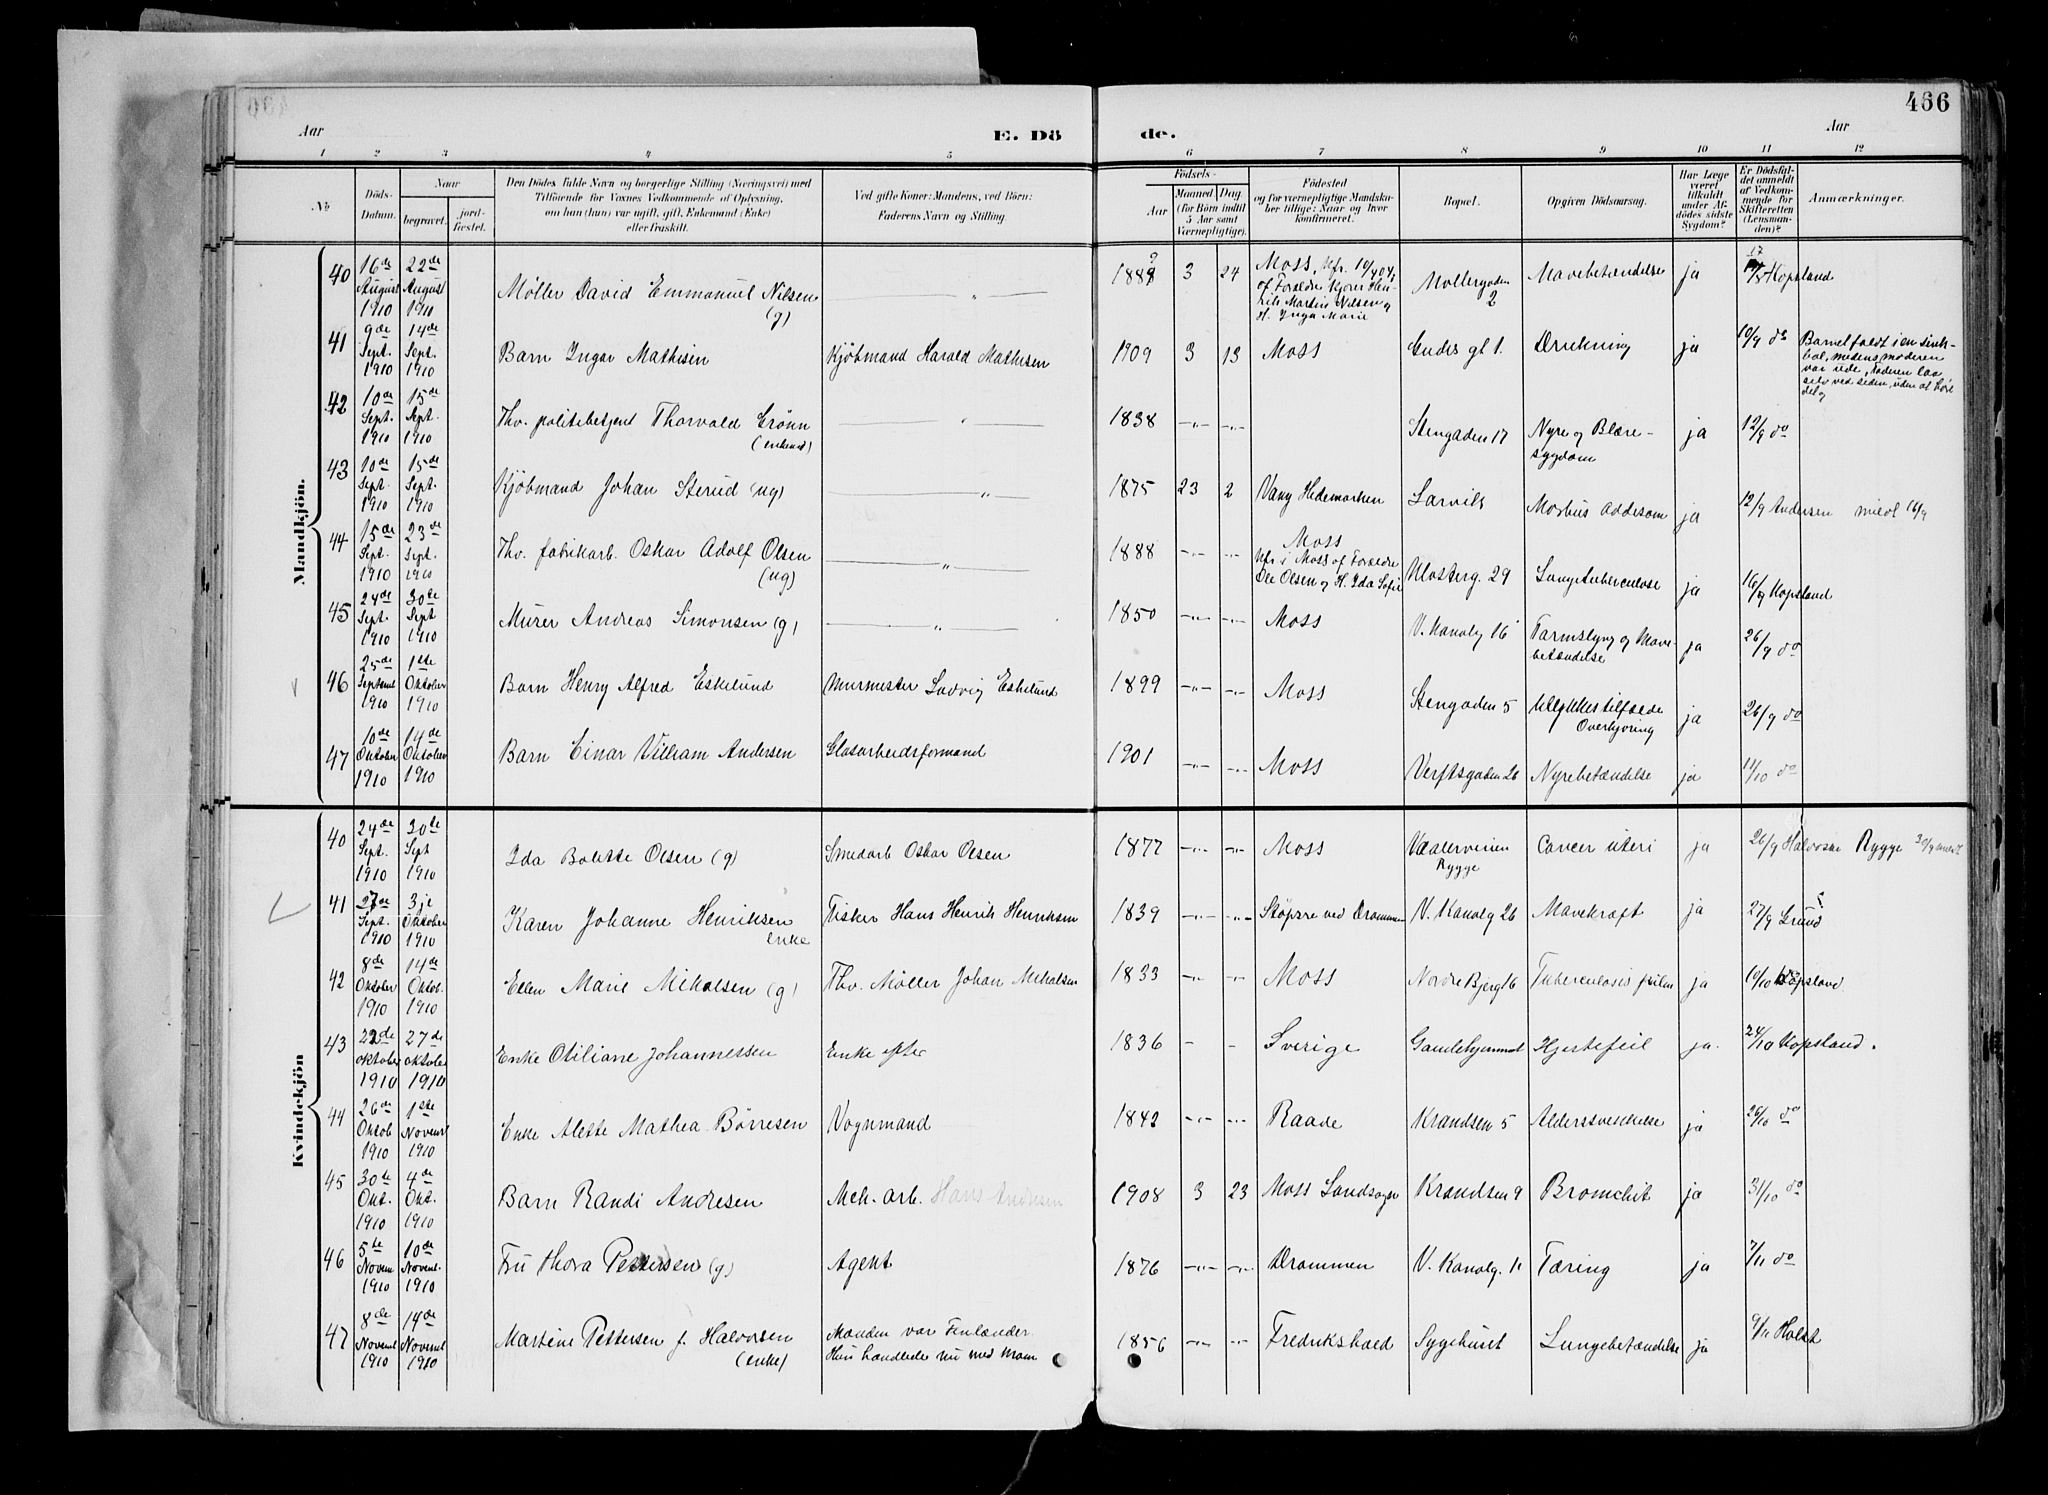 466
Aar
E. Dö
de.
Aar
1 2 3 4 5 6 7 8 9 10 11 12
№
Döds-Datum.
Naar
begravet.
jord-fæstet.
Den Dödes fulde Navn og borgerlige Stilling (Næringsvei) med
Tilföiende for Voxnes Vedkommende af Oplysning,
om han (hun) var ugift, gift, Enkemand (Enke)
eller fraskilt.
Ved gifte Koner: Mandens, ved Börn:
Faderens Navn og Stilling
Födsels-
Aar
Maaned
Dag
(for Börn indtil
5 Aar samt
Værnepligtige).
Födested
og for værnepligtige Mandska-
ber tillige: Naar og hvor
konfirmeret.
Bopæl.
Opgiven Dödsaarsag.
Har Læge
været
tilkaldt
under Af-
dödes sidste
Sygdom?
Er Dödsfal-
det anmeldt
af Vedkom-
mende for
Skifteretten
(Lensman-
den)?
Anmærkninger.
Mandkjön.
40 16de August 1910 22de August 1910 Møller David Emmanuel Nilsen (g) — " — 188 3 24 Moss, Kfr. 10/4 04, af Forældre Kjører Henrik Martin Nilsen og H. Inga Marie Møllergaden 2 Mavebetændelse ja 17 Kopsland
41 9de Sept. 1910 14de Sept. 1910 Barn Ingar Mathisen Kjöbmand Harald Mathisen 1909 3 13 Moss Gudes gt 1. Drukning ja 10/9 do Barnet faldt i en
medens moderen
var ude, Faderen laa
selv ved siden, uden at høre
det
42 10de Sept. 1910 15de Sept. 1910 Fhv. politibetjent Thorvald Grönn (enkemd) — " — 1838 —"— —"— Stengaden 17 Nyre og Blæresygdom ja 12/9 do
43 10de Sept. 1910 15de Sept. 1910 Kjöbmand Johan Sterud (ug) — " — 1875 23 2 Vang Hedemarken Larvik Morbus Addisom ja 12/9 Andersen 16/9
44 15de Sept. 1910 23de Sept. 1910 Fhv. fabrikarb. Oskar Adolf Olsen (ug) — " — 1888 —"— —"— Moss Kfr i Moss af Forældre Ole Olsen og H. Ida Sofie Klosterg. 29 Lungetuberculose ja 16/9 Kopsland
45 24de Sept. 1910 30te Sept 1910 Murer Andreas Simonsen (g) — " — 1850 —"— —"— Moss V. Kanalg 16 Tarmslyng og Mavebetændelse ja 26/9 do
46 25de Septembr 1910 1ste Oktober 1910 Barn Henry Alfred Eskelund Murmester Ludvig Eskelund 1899 —"— —"— Moss Stengaden 5 Ulykkestilfælde Overkjöring ja 26/9 do
47 10de Oktober 1910 14de Oktober 1910 Barn Einar Villiam Andersen Glasarbeidsformand 1901 —"— —"— Moss Verftsgaden 26 Nyrebetændelse ja 11/10 do
Kvindekjön
40 24de Sept. 1910 30te Sept 1910 Ida Bolette Olsen (g) Smedarb Oskar Olsen 1877 —"— —"— Moss Vaalerveien Rygge Cancer uteri ja 26/9 Halvorsen Rygge 30/9
41 27de Sept. 1910 3je Oktober 1910 Karen Johanne Henriksen enke Fisker Hans Henrik Henriksen 1839 —"— —"— ved Drammen V. Kanalg 26 Mavekræft ja 27/9 Grund
42 8de Oktober 1910 14de Oktbr. 1910 Ellen Marie Mikalsen (g) Fhv. Møller Johan Mikalsen 1833 —"— —"— Moss Nordre Bjerg 16 Tuberculosis pulm ja 10/10 Kopsland
43 22de oktober 1910 27de oktober 1910 Enke Otiliane Johannessen Enke efter 1836 - - Sverige Gamlehjemmet Hjertefeil ja. 24/10 Kopsland.
44 26de Oktob 1910 1ste Novembr 1910 Enke Alette Mathea Börresen Vognmand 1842 —"— —"— Raade Krandsen 5 Aldersvækkelse ja 26/10 do
45 30te Okt. 1910 4de Okt. 1910 Barn Randi Andresen Mek. arb. Hans Andresen 1908 3 23 Moss Landsogn Krandsen 9 Bronchit ja 31/10 do
46 5te Novem 1910 10de Novemb. 1910 Fru Thora Pettersen (g) Agent 1876 —"— —"— Drammen V. Kanalg. 11 Tæring ja 7/11 do
47 8de Novembr 1910 14de Novembr 1910 Martine Pettersen f. Halvorsen (enke) Manden var Finlænder Hun handlede nu med Mam 1856 —"— —"— Fredrikshald Sygehuset Lungebetændelse ja 9/11 Holst